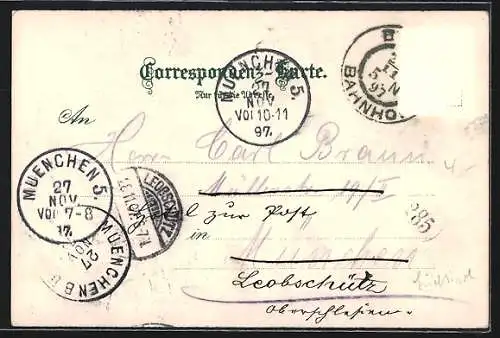 Correspondenz-Karte.
Nur für die Adresse.
MUENCHEN 5.
27
NOV
VOI 10-11
97.
BAHNH
An Herrn Carl Braun
Müllerstr. 19/I
MUENCHEN 5.
27
NOV
VOI 7-8
97.
LEOBSCHÜTZ
zur Post
in München
MUENCHEN
27
NOV
Leobschütz
Oberschlesien
285